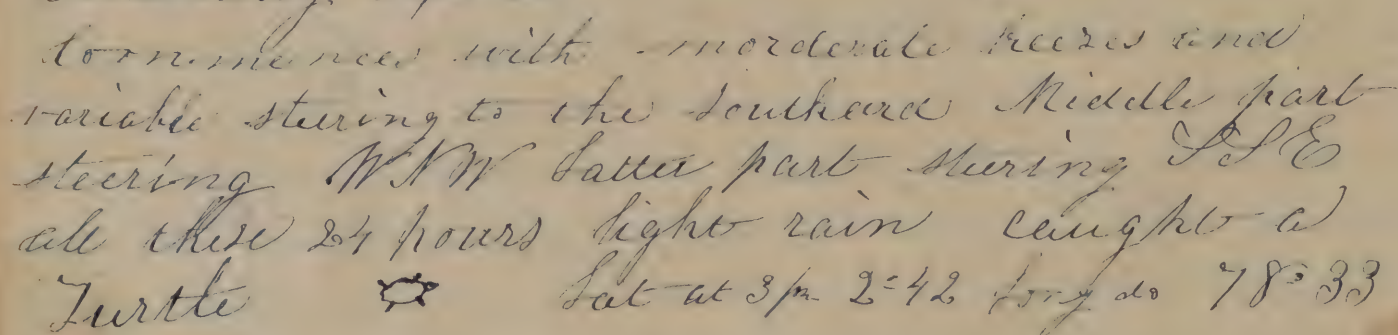 Commences with morderate breezes and
variable steering to the Southard Middle part
steering WNW Latter part stering SSE
all these 24 hours light rain caught a
Turtle Lat at 3 pm 2=42 Long do 78=33